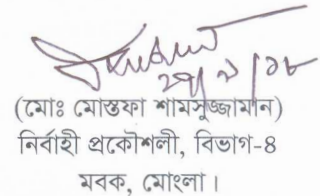 ২৭/৯/১৮
(মোঃ মোস্তফা শামসুজ্জামান)
নির্বাহী প্রকৌশলী, বিভাগ-৪
মবক, মোংলা।